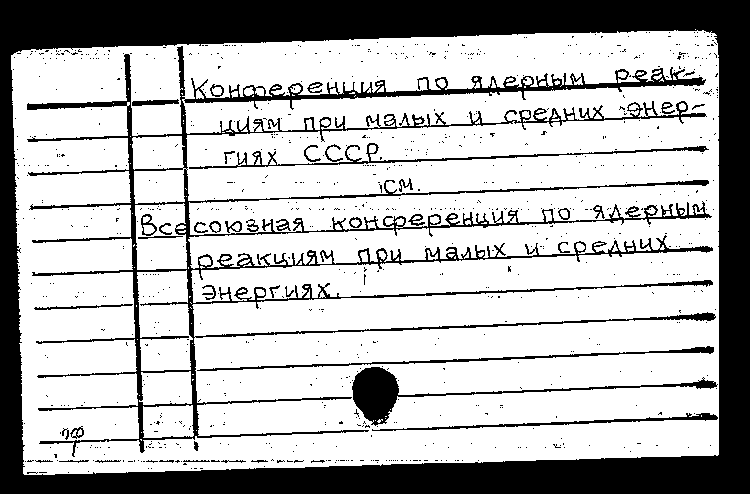 Конференция по ядерным реак-
циям при малых и средних энер-
гиях СССР.
см.
Всесоюзная конференция по ядерным
реакциям при малых и средних
энергиях.